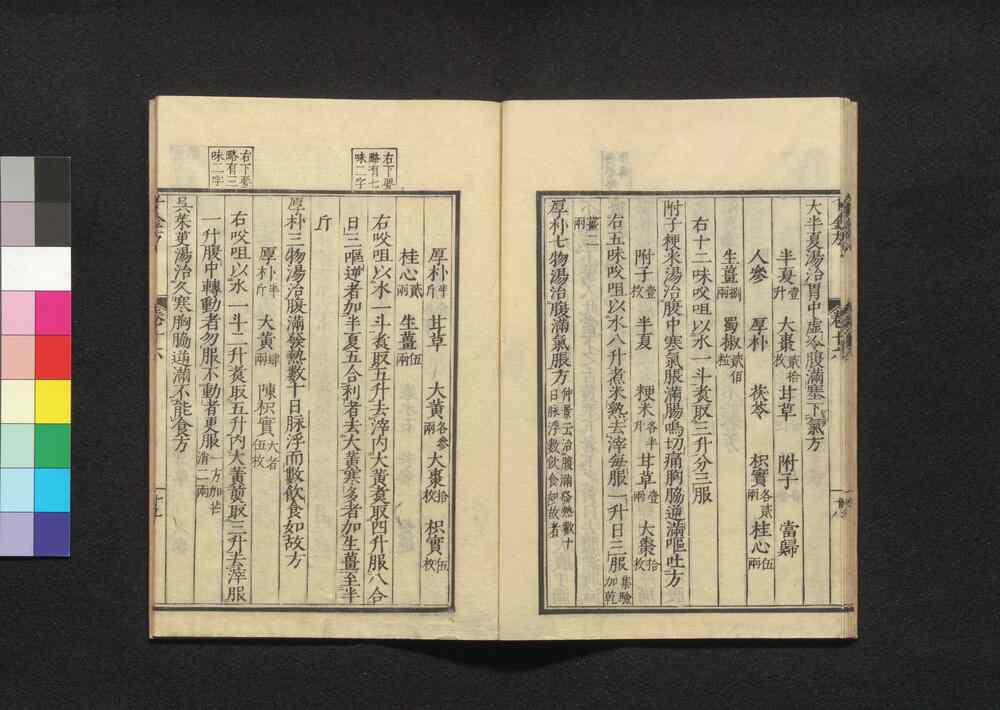 大半夏湯治胃中虛冷腹滿塞下氣方
半夏壹升 大棗貳拾枚 甘草 附子 當歸
人參 厚朴 茯苓 枳實各貳兩 桂心伍兩
生薑捌兩 蜀椒貳佰粒
右十二味㕮咀以水一斗煮取三升分三服
附子粳米湯治腹中寒氣脹滿腸鳴切痛胸脇逆滿嘔吐方
附子壹枚 半夏 粳米各半升 甘草壹兩 大棗拾枚
右五味㕮咀以水八升煮米熟去滓每服一升日三服集驗加乾
薑二兩
厚朴七物湯治腹滿氣脹方仲景云治腹滿發熱數十日脉浮數飲食如故者
右下要略有七味二字
厚朴半斤 甘草 大黃各參兩 大棗拾枚 枳實伍枚
桂心貳兩 生薑伍兩
右㕮咀以水一斗煮取五升去滓內大黃煮取四升服八合
日三嘔逆者加半夏五合利者去大黃寒多者加生薑至半
斤
右下要略有三味二字
厚朴三物湯治腹滿發熱數十日脉浮而數飲食如故方
厚朴半斤 大黃肆兩 陳枳實大者伍枚
右㕮咀以水一斗二升煮取五升內大黃煎取三升去滓服
一升腹中轉動者勿服不動者更服一方加芒消二兩
吳茱萸湯治久寒胸脇逆滿不能食方